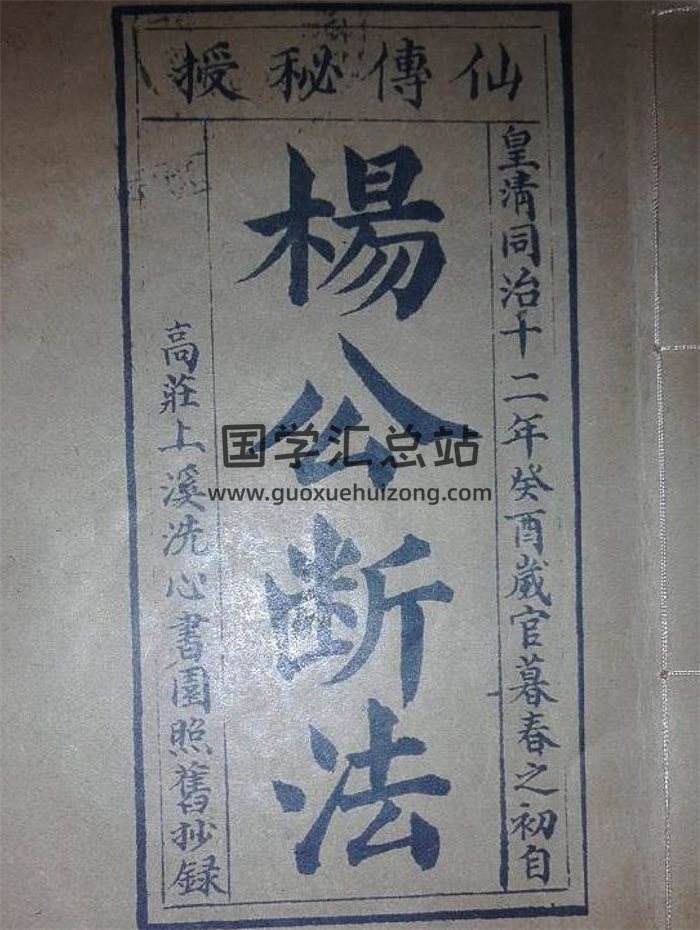 仙傳秘授
皇清同治十二年癸酉嵗官暮春之初自
楊公断法
高莊上溪洗心書園照舊抄録
国学汇总站
www.guoxuehuizong.com